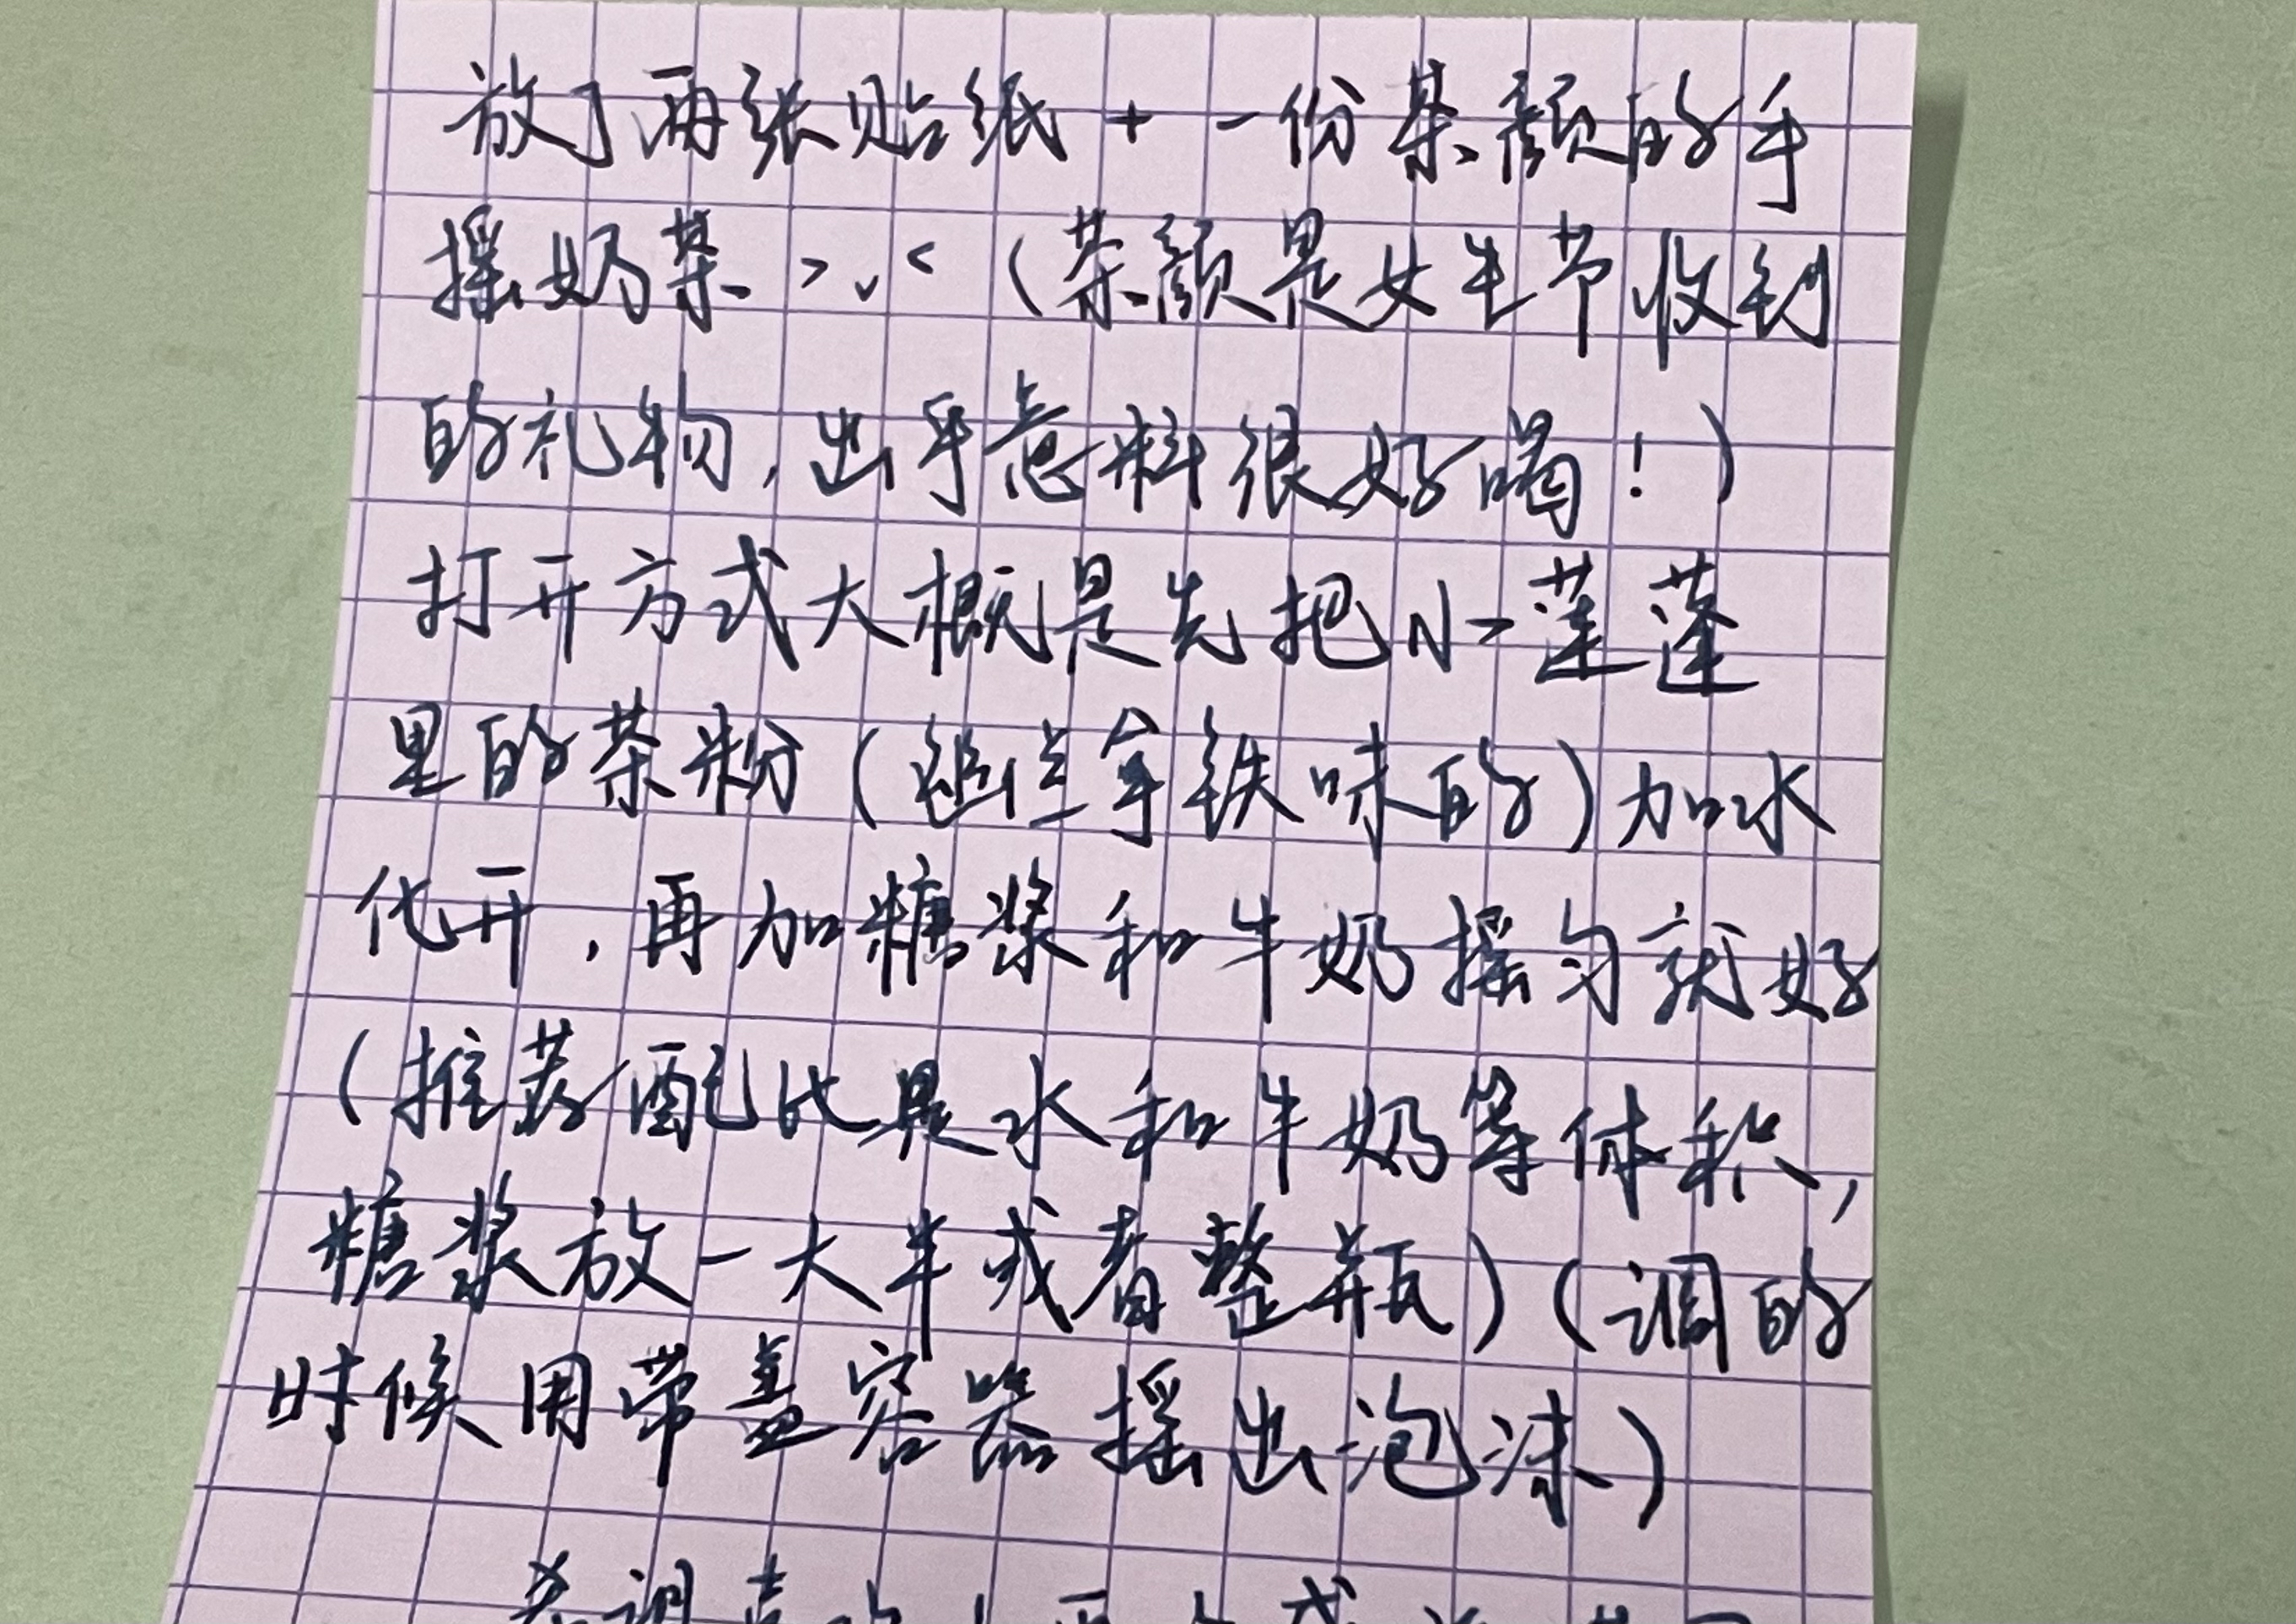 放了两张贴纸 + 一份茶颜的手
摇奶茶 >v< (茶颜是女生节收到
的礼物，出乎意料很好喝！)
打开方式大概是先把小莲蓬
里的茶粉(幽兰拿铁味的)加水
化开，再加糖浆和牛奶摇匀就好
(推荐配比是水和牛奶等体积，
糖浆放一大半或者整瓶)(调的
时候用带盖容器摇出泡沫)